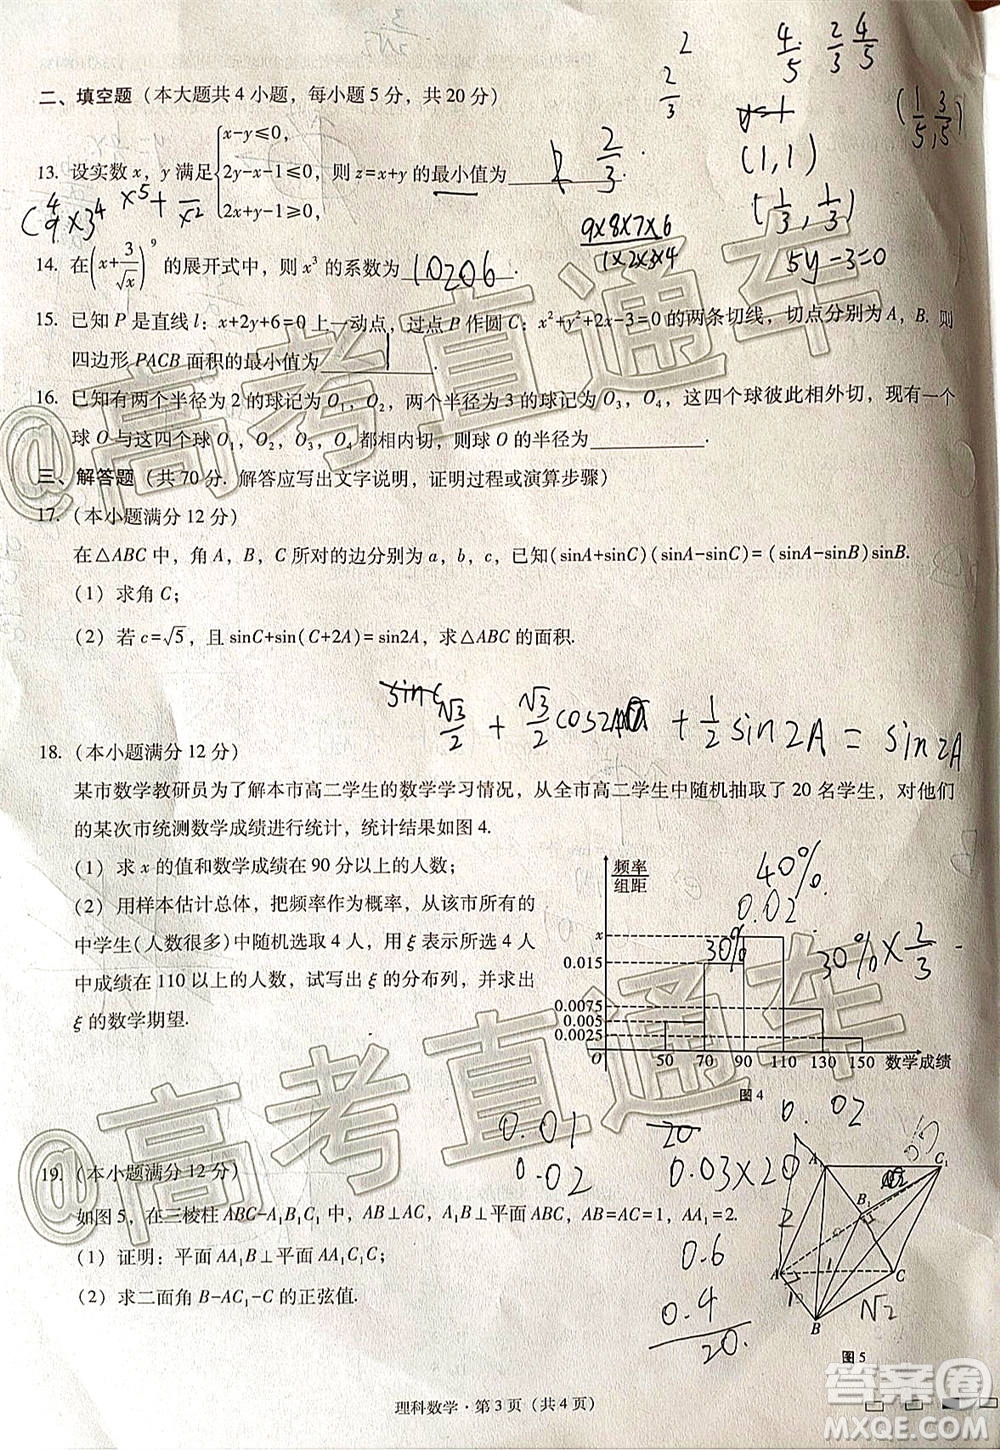 二、填空题（本大题共4小题，每小题5分，共20分）
x-y≤0,
13. 设实数 x，y 满足 2y-x-1≤0, 则 z=x+y 的最小值为 2/3
2x+y-1≥0,
14. 在(x+3/√x)^9 的展开式中，则 x³ 的系数为 10206.
15. 已知 P 是直线 l：x+2y+6=0 上一动点，过点 P 作圆 C：x²+y²+2x-3=0 的两条切线，切点分别为 A，B. 则
四边形 PACB 面积的最小值为 1.
16. 已知有两个半径为 2 的球记为 O₁，O₂，两个半径为 3 的球记为 O₃，O₄，这四个球彼此相外切，现有一
球 O 与这四个球 O₁，O₂，O₃，O₄ 都相内切，则球 O 的半径为
三、解答题（共70分. 解答应写出文字说明，证明过程或演算步骤）
17.（本小题满分12分）
在△ABC 中，角 A，B，C 所对的边分别为 a，b，c，已知(sinA+sinC)(sinA-sinC)=(sinA-sinB)sinB.
（1）求角 C；
（2）若 c=√5，且 sinC+sin(C+2A)=sin2A，求△ABC 的面积.
√3/2 + √3/2 cos2A + 1/2 sin2A = sin2A
18.（本小题满分12分）
某市数学教研员为了解本市高二学生的数学学习情况，从全市高二学生中随机抽取了 20 名学生，对他们
的某次市统测数学成绩进行统计，统计结果如图 4.
（1）求 x 的值和数学成绩在 90 分以上的人数；
（2）用样本估计总体，把频率作为概率，从该市所有的
中学生(人数很多)中随机选取 4 人，用 ξ 表示所选 4 人
中成绩在 110 以上的人数，试写出 ξ 的分布列，并求出
ξ 的数学期望.
频率
组距
x
0.015
0.0075
0.005
0.0025
O 50 70 90 110 130 150 数学成绩
图 4
40%
0.02
30%
30% × 2/3
19.（本小题满分12分）
如图 5，在三棱柱 ABC-A₁B₁C₁ 中，AB⊥AC，A₁B⊥平面 ABC，AB=AC=1，AA₁=2.
（1）证明：平面 AA₁B⊥平面 A₁AC；
（2）求二面角 B-AC₁-C 的正弦值.
0.01
0.02
20
0.03×20
0.02
0.6
0.4
20.
A₁ C₁
B₁
A C
B
2
1
√2
图 5
2
2/3
4/5 2/3 4/5
(1/5, 3/5)
(1,1)
(1/3, 1/3)
5y-3=0
9×8×7×6
1×2×3×4
理科数学・第 3 页（共 4 页）
@高考直通车
@高考直通车
答案圈
MXQE.COM